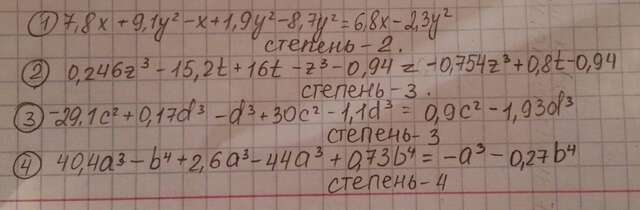 ① 7,8x + 9,1y² - x + 1,9y² - 8,7y² = 6,8x - 2,3y²
степень - 2.
② 0,246z³ - 15,2t + 16t - z³ - 0,94 = -0,754z³ + 0,8t - 0,94
степень - 3.
③ -29,1c² + 0,17d³ - d³ + 30c² - 1,1d³ = 0,9c² - 1,93d³
степень - 3
④ 40,4a³ - b⁴ + 2,6a³ - 44a³ + 0,73b⁴ = -a³ - 0,27b⁴
степень - 4